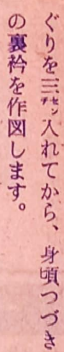 ぐりを三㌢入れてから、身頃つづき
の裏衿を作図します。